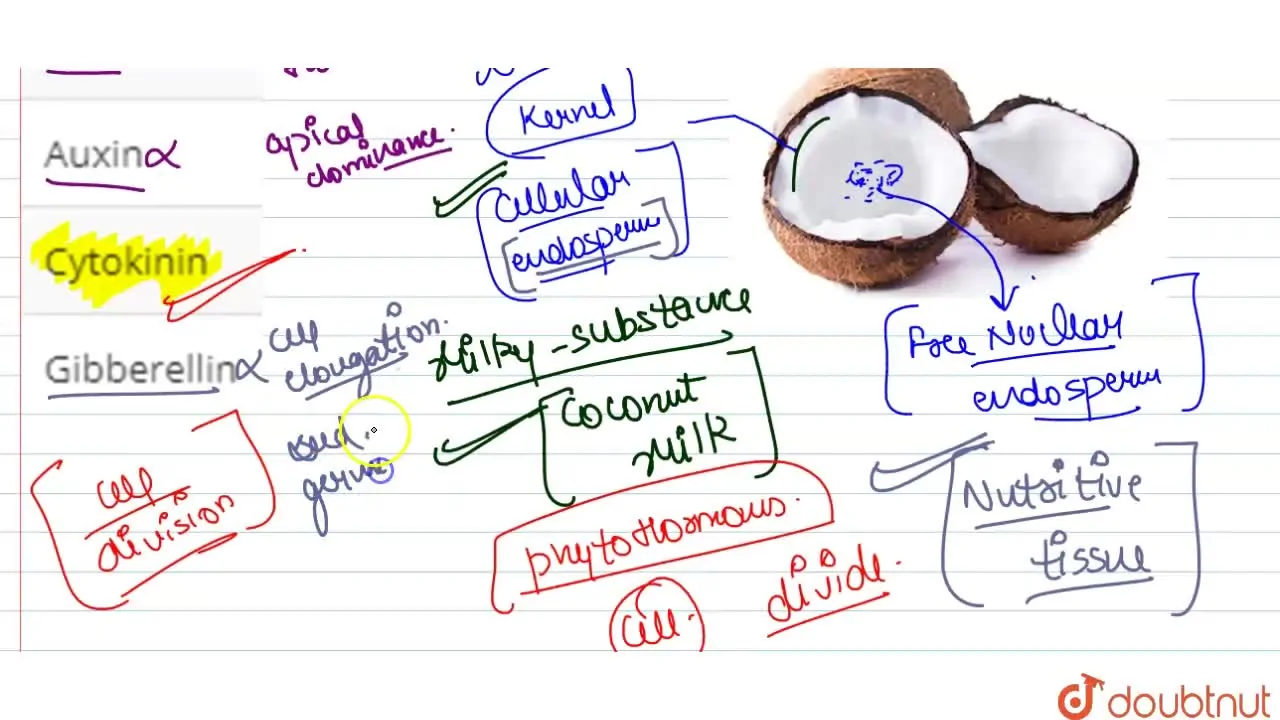 Kernel
Auxin
apical
dominance.
Cellular
endosperm
Cytokinin
Free Nuclear
endosperm
Milky-substance
Coconut
Milk
Gibberellin
cell
elongation.
seed
germi
cell
division
Nutritive
tissue
phytohormones.
cell.
divide.
doubtnut